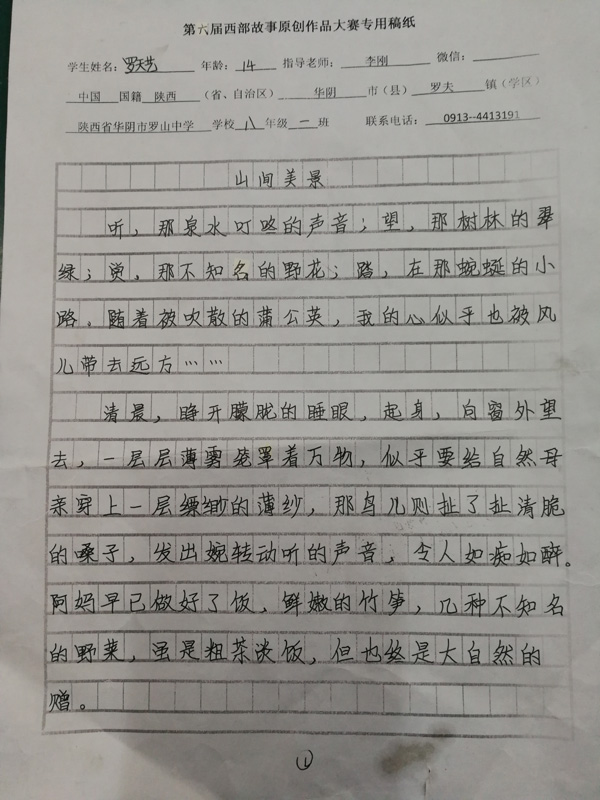 第六届西部故事原创作品大赛专用稿纸
学生姓名：罗天艺 年龄：14 指导老师：李刚 微信：
中国 国籍 陕西 （省、自治区） 华阴 市（县） 罗夫 镇（学区）
陕西省华阴市罗山中学 学校 八 年级 一 班 联系电话：0913--4413191
山间美景
听，那泉水叮咚的声音；望，那树林的翠
绿；赏，那不知名的野花；踏，在那蜿蜒的小
路。随着被吹散的蒲公英，我的心似乎也被风
儿带去远方……
清晨，睁开朦胧的睡眼，起身，向窗外望
去，一层层薄雾笼罩着万物，似乎要给自然母
亲穿上一层缥缈的薄纱，那鸟儿则扯了扯清脆
的嗓子，发出婉转动听的声音，令人如痴如醉。
阿妈早已做好了饭，鲜嫩的竹笋，几种不知名
的野菜，虽是粗茶淡饭，但也终是大自然的
赠。
1